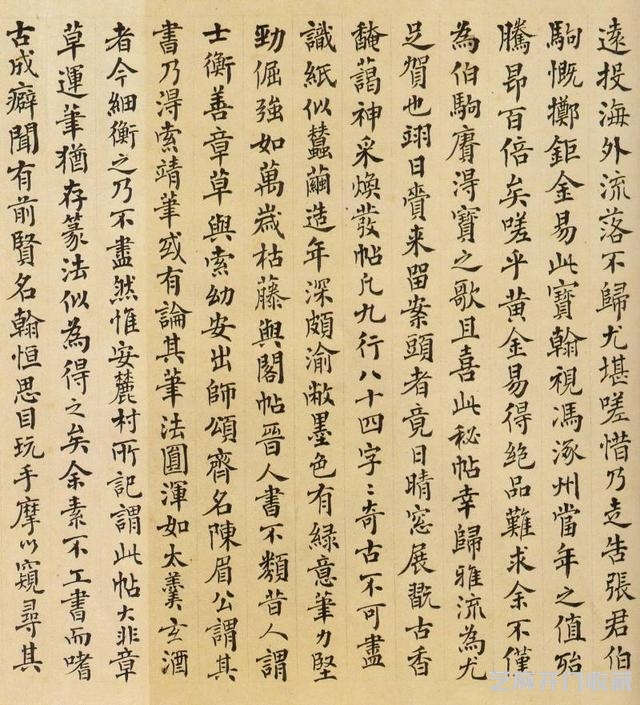 遠投海外流落不歸尤堪嗟惜乃走告張君伯
駒慨擲鉅金易此寶翰視馮涿州當年之值殆
騰昂百倍矣嗟乎黃金易得絕品難求余不僅
為伯駒賡得寶之歌且喜此秘帖幸歸雅流為尤
足賀也翊日賫来留案頭者竟日晴窓展翫古香
馣藹神采煥發帖凡九行八十四字〻奇古不可盡
識紙似蠶繭造年深頗渝敝墨色有緑意筆力堅
勁倔強如萬歲枯藤與閣帖晋人書不類昔人謂
士衡善章草與索幼安出師頌齊名陳眉公謂其
書乃得索靖筆或有論其筆法圓渾如太羹玄酒
者今細衡之乃不盡然惟安麓村所記謂此帖大非章
草運筆猶存篆法似為得之矣余素不工書而嗜
古成癖聞有前賢名翰恒思目玩手摩以窺尋其
艺麻开门收藏